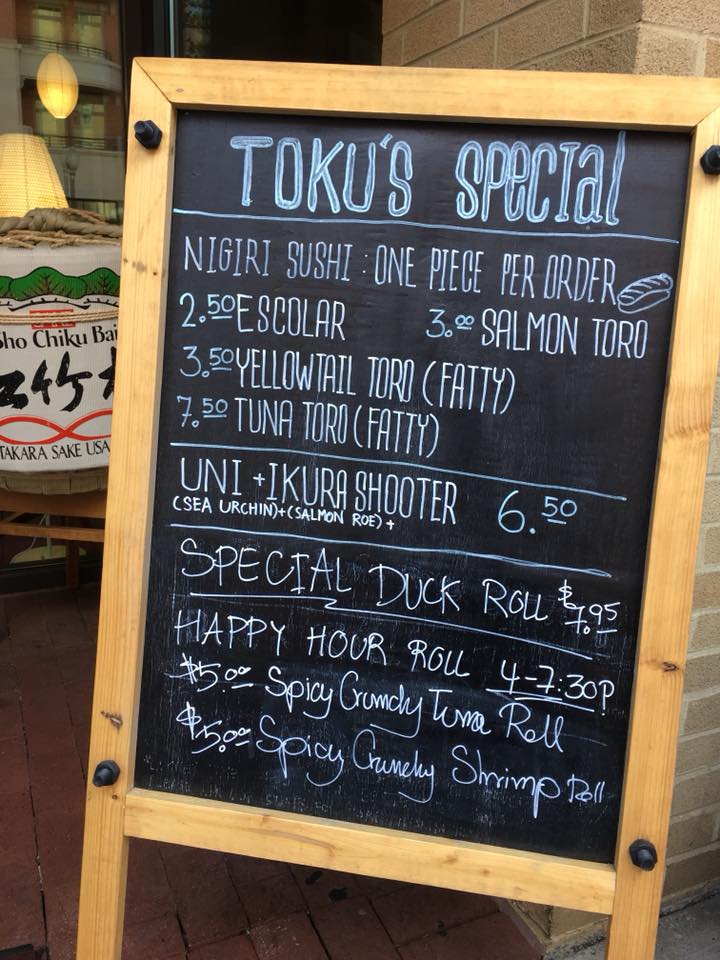 TOKU'S SPECIAL
NIGIRI SUSHI : ONE PIECE PER ORDER
2.50 ESCOLAR 3.00 SALMON TORO
3.50 YELLOWTAIL TORO (FATTY)
7.50 TUNA TORO (FATTY)
UNI + IKURA SHOOTER 6.50
(SEA URCHIN)+(SALMON ROE)+
SPECIAL DUCK ROLL $7.95
HAPPY HOUR ROLL 4-7:30P
$5.00 Spicy Crunchy Tuna Roll
$5.00 Spicy Crunchy Shrimp Roll
SAKE
Sho Chiku Bai
TAKARA SAKE USA